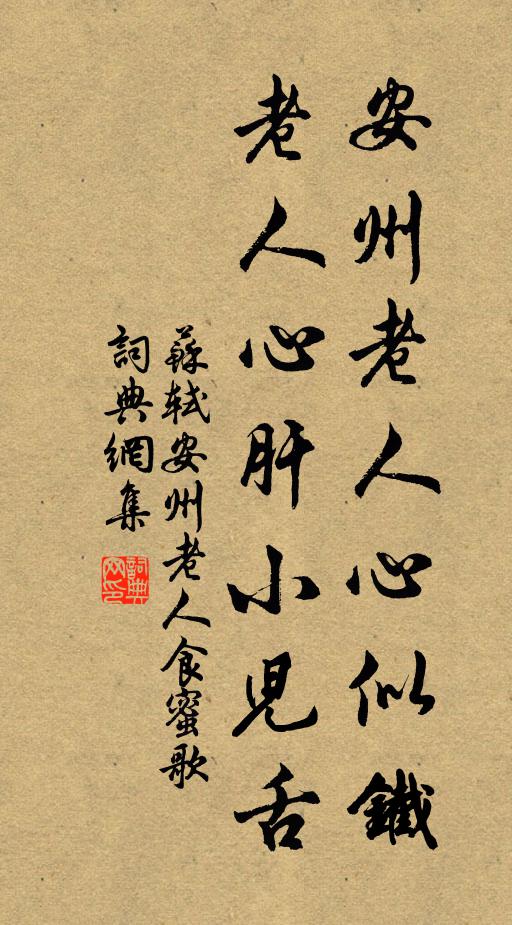 安州老人心似鐵
老人心肝小兒舌
蘇軾安州老人食蜜歌
詞典網集
詞典網印